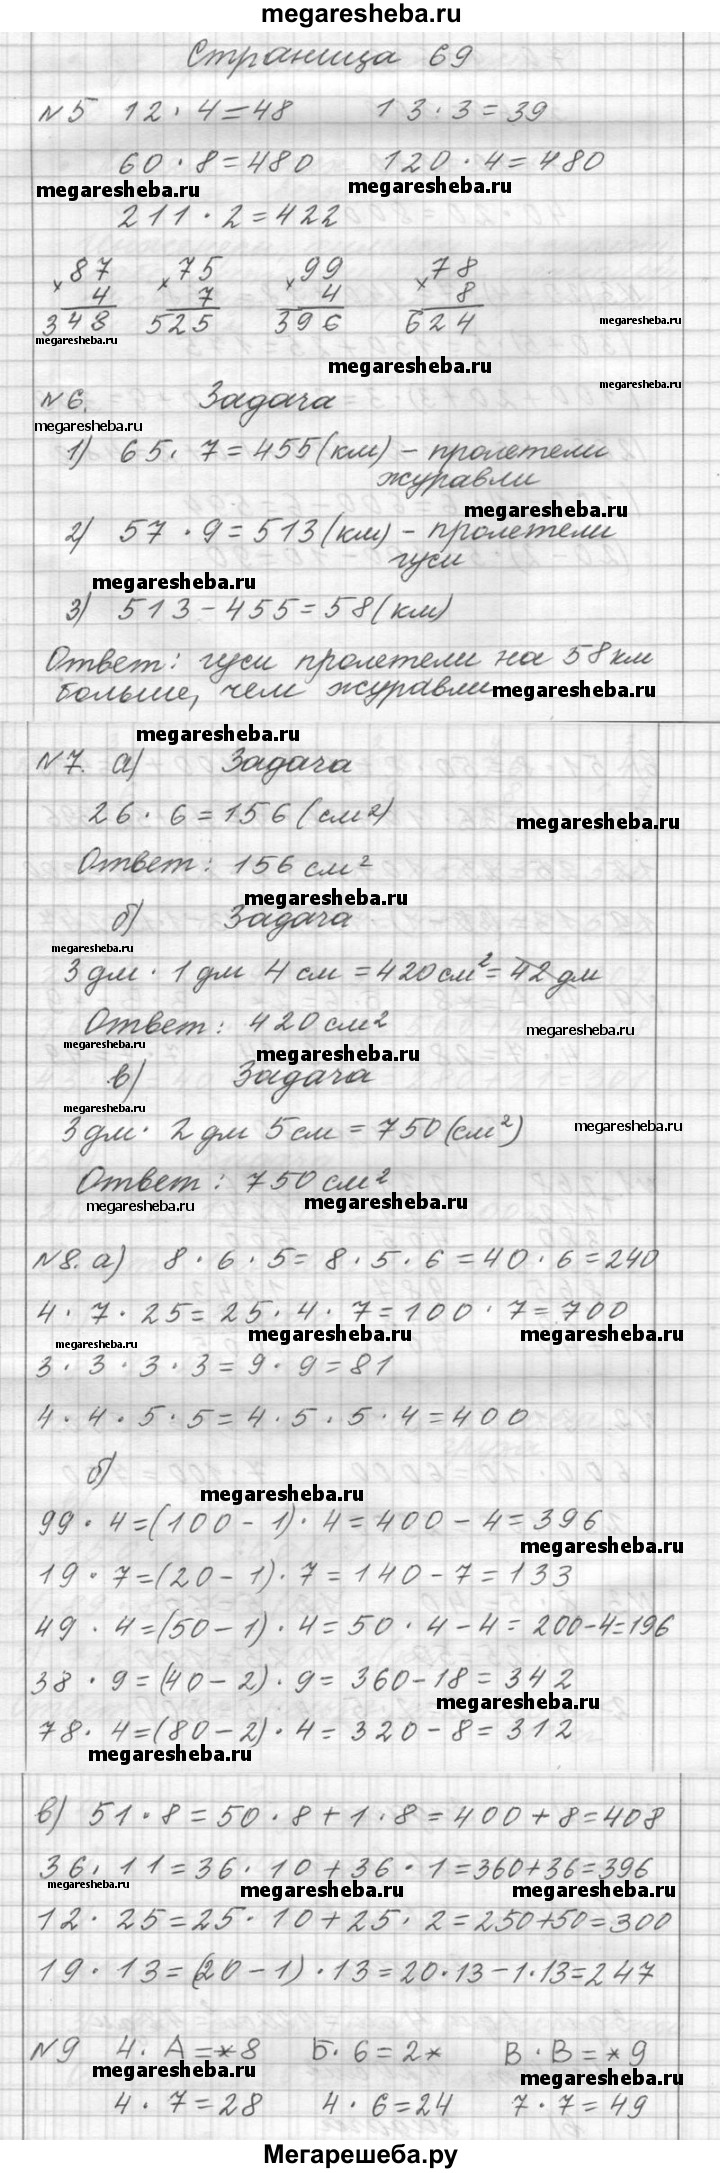 megaresheba.ru
Страница 69
№5 12 · 4 = 48 13 · 3 = 39
60 · 8 = 480 120 · 4 = 480
megaresheba.ru megaresheba.ru
211 · 2 = 422
× 87 × 75 × 99 × 78
4 7 4 8
348 525 396 624
megaresheba.ru megaresheba.ru
megaresheba.ru
megaresheba.ru
№6. Задача
megaresheba.ru
1) 65 · 7 = 455 (км) – пролетели
журавли
megaresheba.ru
2) 57 · 9 = 513 (км) – пролетели
гуси
megaresheba.ru
3) 513 – 455 = 58 (км)
Ответ: гуси пролетели на 58 км
больше, чем журавли
megaresheba.ru
megaresheba.ru
№7. а) Задача
26 · 6 = 156 (см²)
megaresheba.ru
Ответ: 156 см²
megaresheba.ru
б) Задача
megaresheba.ru
3 дм · 1 дм 4 см = 420 см² = 42 дм
Ответ: 420 см²
megaresheba.ru
megaresheba.ru
megaresheba.ru
в) Задача
megaresheba.ru
3 дм · 2 дм 5 см = 750 (см²)
megaresheba.ru
Ответ: 750 см²
megaresheba.ru megaresheba.ru
№8. а) 8 · 6 · 5 = 8 · 5 · 6 = 40 · 6 = 240
4 · 7 · 25 = 25 · 4 · 7 = 100 · 7 = 700
megaresheba.ru megaresheba.ru megaresheba.ru
3 · 3 · 3 · 3 = 9 · 9 = 81
4 · 4 · 5 · 5 = 4 · 5 · 5 · 4 = 400
б)
megaresheba.ru
99 · 4 = (100 – 1) · 4 = 400 – 4 = 396
megaresheba.ru
19 · 7 = (20 – 1) · 7 = 140 – 7 = 133
49 · 4 = (50 – 1) · 4 = 50 · 4 – 4 = 200 – 4 = 196
38 · 9 = (40 – 2) · 9 = 360 – 18 = 342
megaresheba.ru
78 · 4 = (80 – 2) · 4 = 320 – 8 = 312
megaresheba.ru
в) 51 · 8 = 50 · 8 + 1 · 8 = 400 + 8 = 408
36 · 11 = 36 · 10 + 36 · 1 = 360 + 36 = 396
megaresheba.ru megaresheba.ru megaresheba.ru
12 · 25 = 25 · 10 + 25 · 2 = 250 + 50 = 300
19 · 13 = (20 – 1) · 13 = 20 · 13 – 1 · 13 = 247
№9 4 · А = *8 Б · 6 = 2* В · В = *9
megaresheba.ru megaresheba.ru
4 · 7 = 28 4 · 6 = 24 7 · 7 = 49
Мегарешеба.ру